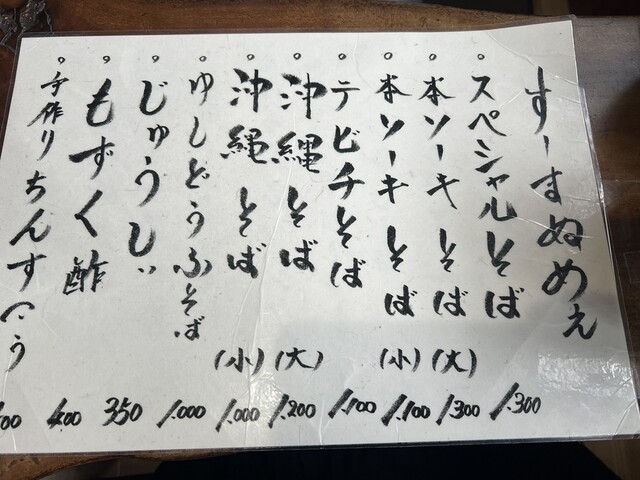 すーすぬめぇ
。スペシャルそば 1.300
。本ソーキそば(大) 1.300
。本ソーキそば(小) 1.100
。テビチそば 1.100
。沖縄そば(大) 1.200
。沖縄そば(小) 1.000
。ゆしどうふそば 1.000
。じゅうしぃ 350
。もずく酢 400
。手作りちんすこう